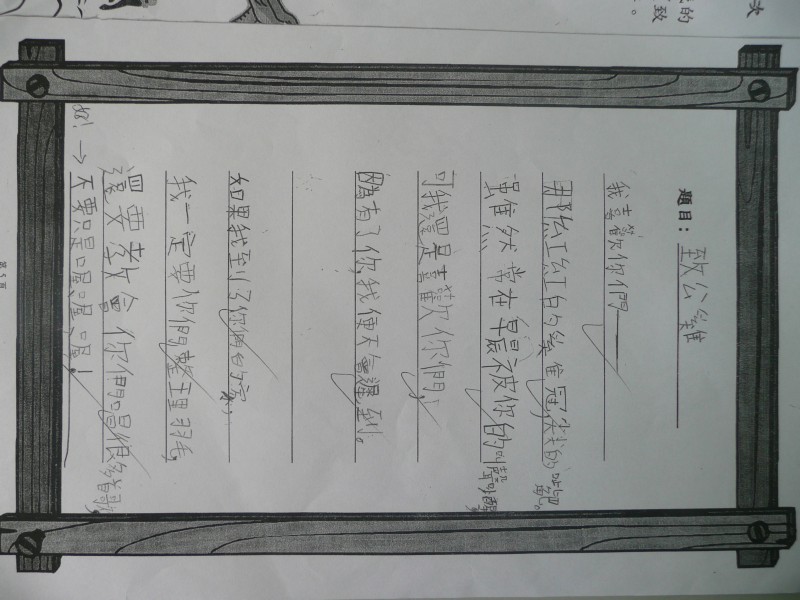 題目：致公雞
我喜歡你們——
那么紅紅的雞冠，尖尖的嘴吧。
雖然常在早晨被你的叫聲吵醒，
可我還是喜歡你們，
因為有了你，我便不會遲到。
如果我到了你們的家，
我一定要你們整理羽毛，
還要教會你們唱很多首歌
不要只是喔、喔、喔！